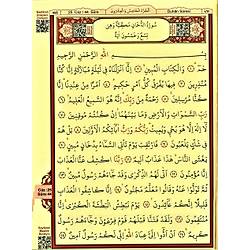 25. Cüz / 44. Sûre
الجزء الخامس والعشرون
Duhân Sûresi
سُورَةُ الدُّخَانِ مَكِّيَّةٌ وَهِيَ
تِسْعٌ وَخَمْسُونَ آيَةً
بِسْمِ اللّٰهِ الرَّحْمٰنِ الرَّحِيمِ
حٰمٓ وَالْكِتَابِ الْمُبِينِ اِنَّٓا اَنْزَلْنَاهُ فِي لَيْلَةٍ مُبَارَكَةٍ اِنَّا كُنَّا
مُنْذِرِينَ فِيهَا يُفْرَقُ كُلُّ اَمْرٍ حَكِيمٍ اَمْرًا مِنْ عِنْدِنَا اِنَّا كُنَّا
مُرْسِلِينَ رَحْمَةً مِنْ رَبِّكَ اِنَّهُ هُوَ السَّمِيعُ الْعَلِيمُ
رَبِّ السَّمٰوَاتِ وَالْاَرْضِ وَمَا بَيْنَهُمَا اِنْ كُنْتُمْ مُوقِنِينَ لَٓا اِلٰهَ اِلَّا
هُوَ يُحْيِي وَيُمِيتُ رَبُّكُمْ وَرَبُّ اٰبَٓائِكُمُ الْاَوَّلِينَ بَلْ هُمْ فِي شَكٍّ
يَلْعَبُونَ فَارْتَقِبْ يَوْمَ تَأْتِي السَّمَٓاءُ بِدُخَانٍ مُبِينٍ
يَغْشَى النَّاسَ هٰذَا عَذَابٌ اَلِيمٌ رَبَّنَا اكْشِفْ عَنَّا الْعَذَابَ
اِنَّا مُؤْمِنُونَ اَنّٰى لَهُمُ الذِّكْرٰى وَقَدْ جَٓاءَهُمْ رَسُولٌ مُبِينٌ
ثُمَّ تَوَلَّوْا عَنْهُ وَقَالُوا مُعَلَّمٌ مَجْنُونٌ اِنَّا كَاشِفُوا الْعَذَابِ
قَلِيلًا اِنَّكُمْ عَٓائِدُونَ يَوْمَ نَبْطِشُ الْبَطْشَةَ الْكُبْرٰى اِنَّا
مُنْتَقِمُونَ وَلَقَدْ فَتَنَّا قَبْلَهُمْ قَوْمَ فِرْعَوْنَ وَجَٓاءَهُمْ رَسُولٌ
كَرِيمٌ اَنْ اَدُّٓوا اِلَيَّ عِبَادَ اللّٰهِ اِنِّي لَكُمْ رَسُولٌ اَمِينٌ